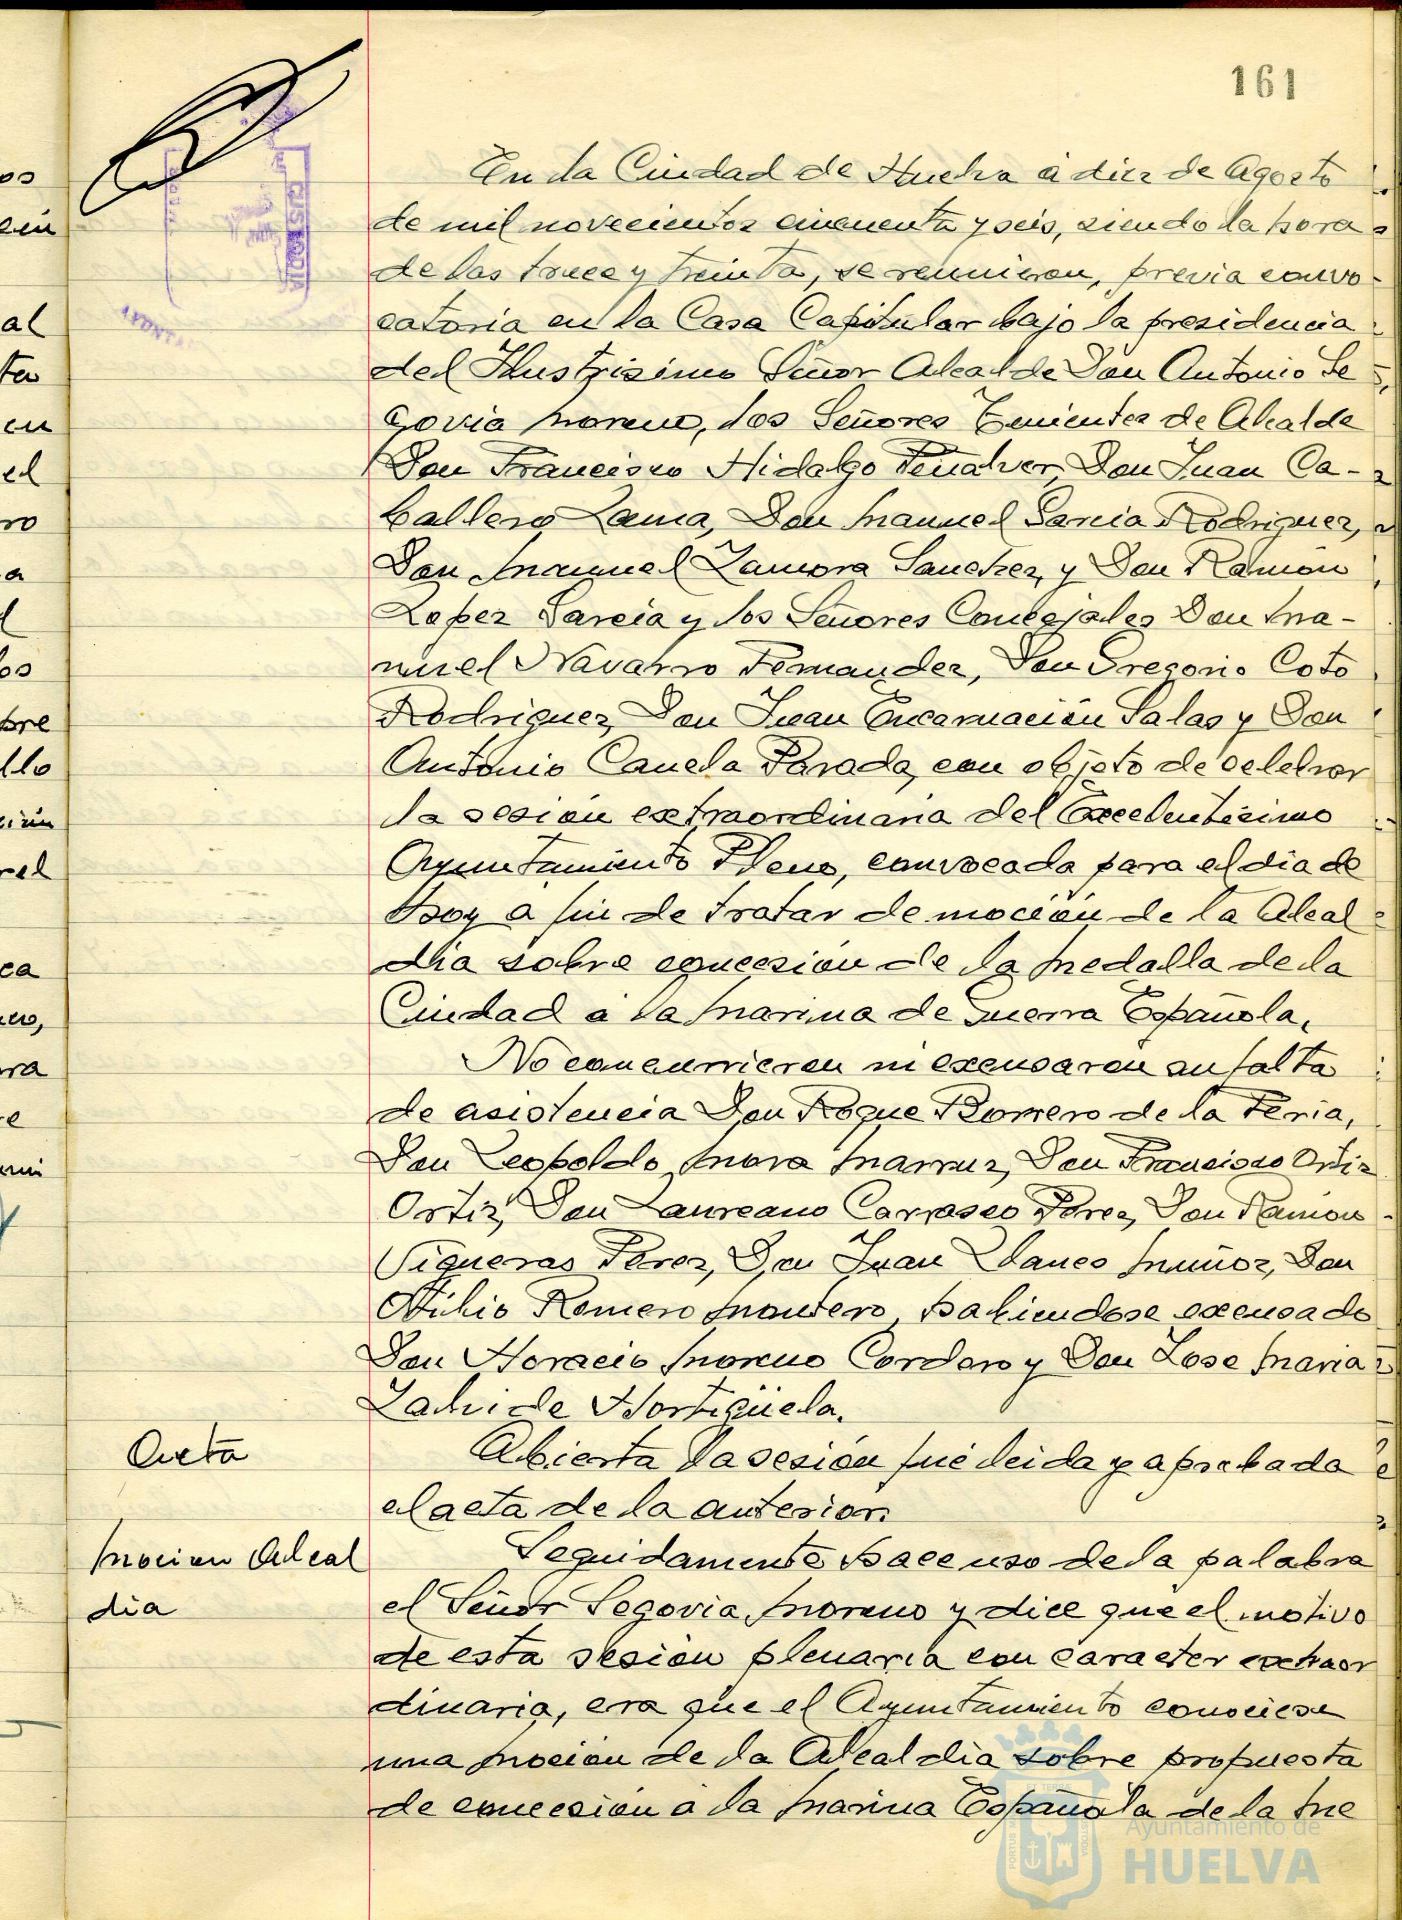 161
En la Ciudad de Huelva a diez de Agosto
de mil novecientos cincuenta y seis, siendo la hora
de las trece y treinta, se reunieron, previa convo-
catoria en la Casa Capitular bajo la presidencia
del Ilustrisimo Señor Alcalde Don Antonio Se
govia Moreno, los Señores Tenientes de Alcalde
Don Francisco Hidalgo Peñalver, Don Juan Ca-
ballero Lama, Don Manuel Garcia Rodriguez,
Don Manuel Zamora Sanchez, y Don Ramón
Lopez García y los Señores Concejales Don Ma-
nuel Navarro Fernandez, Don Gregorio Coto
Rodriguez, Don Juan Encarnación Salas y Don
Antonio Canela Parada, con objeto de celebrar
la sesión extraordinaria del Excelentísimo
Ayuntamiento Pleno, convocada para el dia de
hoy a fin de tratar de moción de la Alcal
dia sobre concesión de la Medalla de la
Ciudad a la Marina de Guerra Española.
No concurrieron ni excusaron su falta
de asistencia Don Roque Borrero de la Feria,
Don Leopoldo Mora Marruz, Don Francisco Ortiz
Ortiz, Don Laureano Carrasco Perez, Don Ramón
Vigueras Perez, Don Juan Llanes Muñoz, Don
Otilio Romero Montero, habiendose excusado
Don Horacio Moreno Cordero y Don Jose Maria
Zalvide Hortigüela.
Acta
Abierta la sesión fué leida y aprobada
el acta de la anterior.
Mocion Alcal
dia
Seguidamente hace uso de la palabra
el Señor Segovia Moreno y dice que el motivo
de esta sesión plenaria con caracter extraor
dinaria, era que el Ayuntamiento conociese
una moción de la Alcaldia sobre propuesta
de concesión a la Marina Española de la Me
Ayuntamiento de
HUELVA
CUSTODIA
AYUNTA
al
en
el
ro
a
los
bre
llo
ca
ra